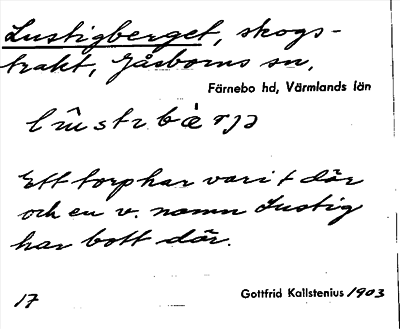 Lustigberget, skogs-
trakt, Gåsborns sn,
Färnebo hd, Värmlands län
Ett torp har varit där
och en v. namn Lustig
har bott där.
17
Gottfrid Kallstenius 1903